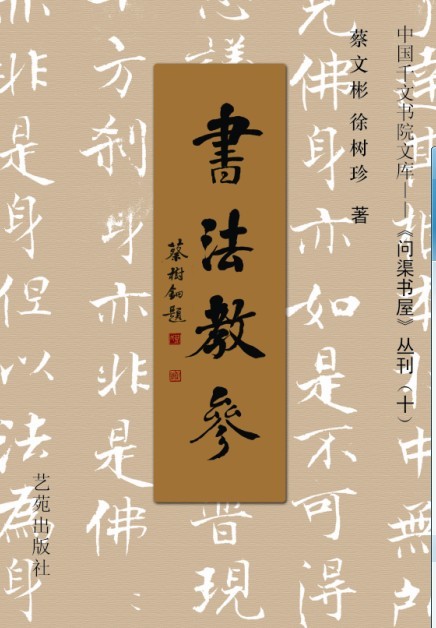 中国千文书院文库——《问渠书屋》丛刊（十）
蔡文彬 徐树珍 著
書法教參
蔡樹題
艺苑出版社
中無
見佛身亦如是不可得
議
普現
方刹身亦非是佛
非是身但以法為身